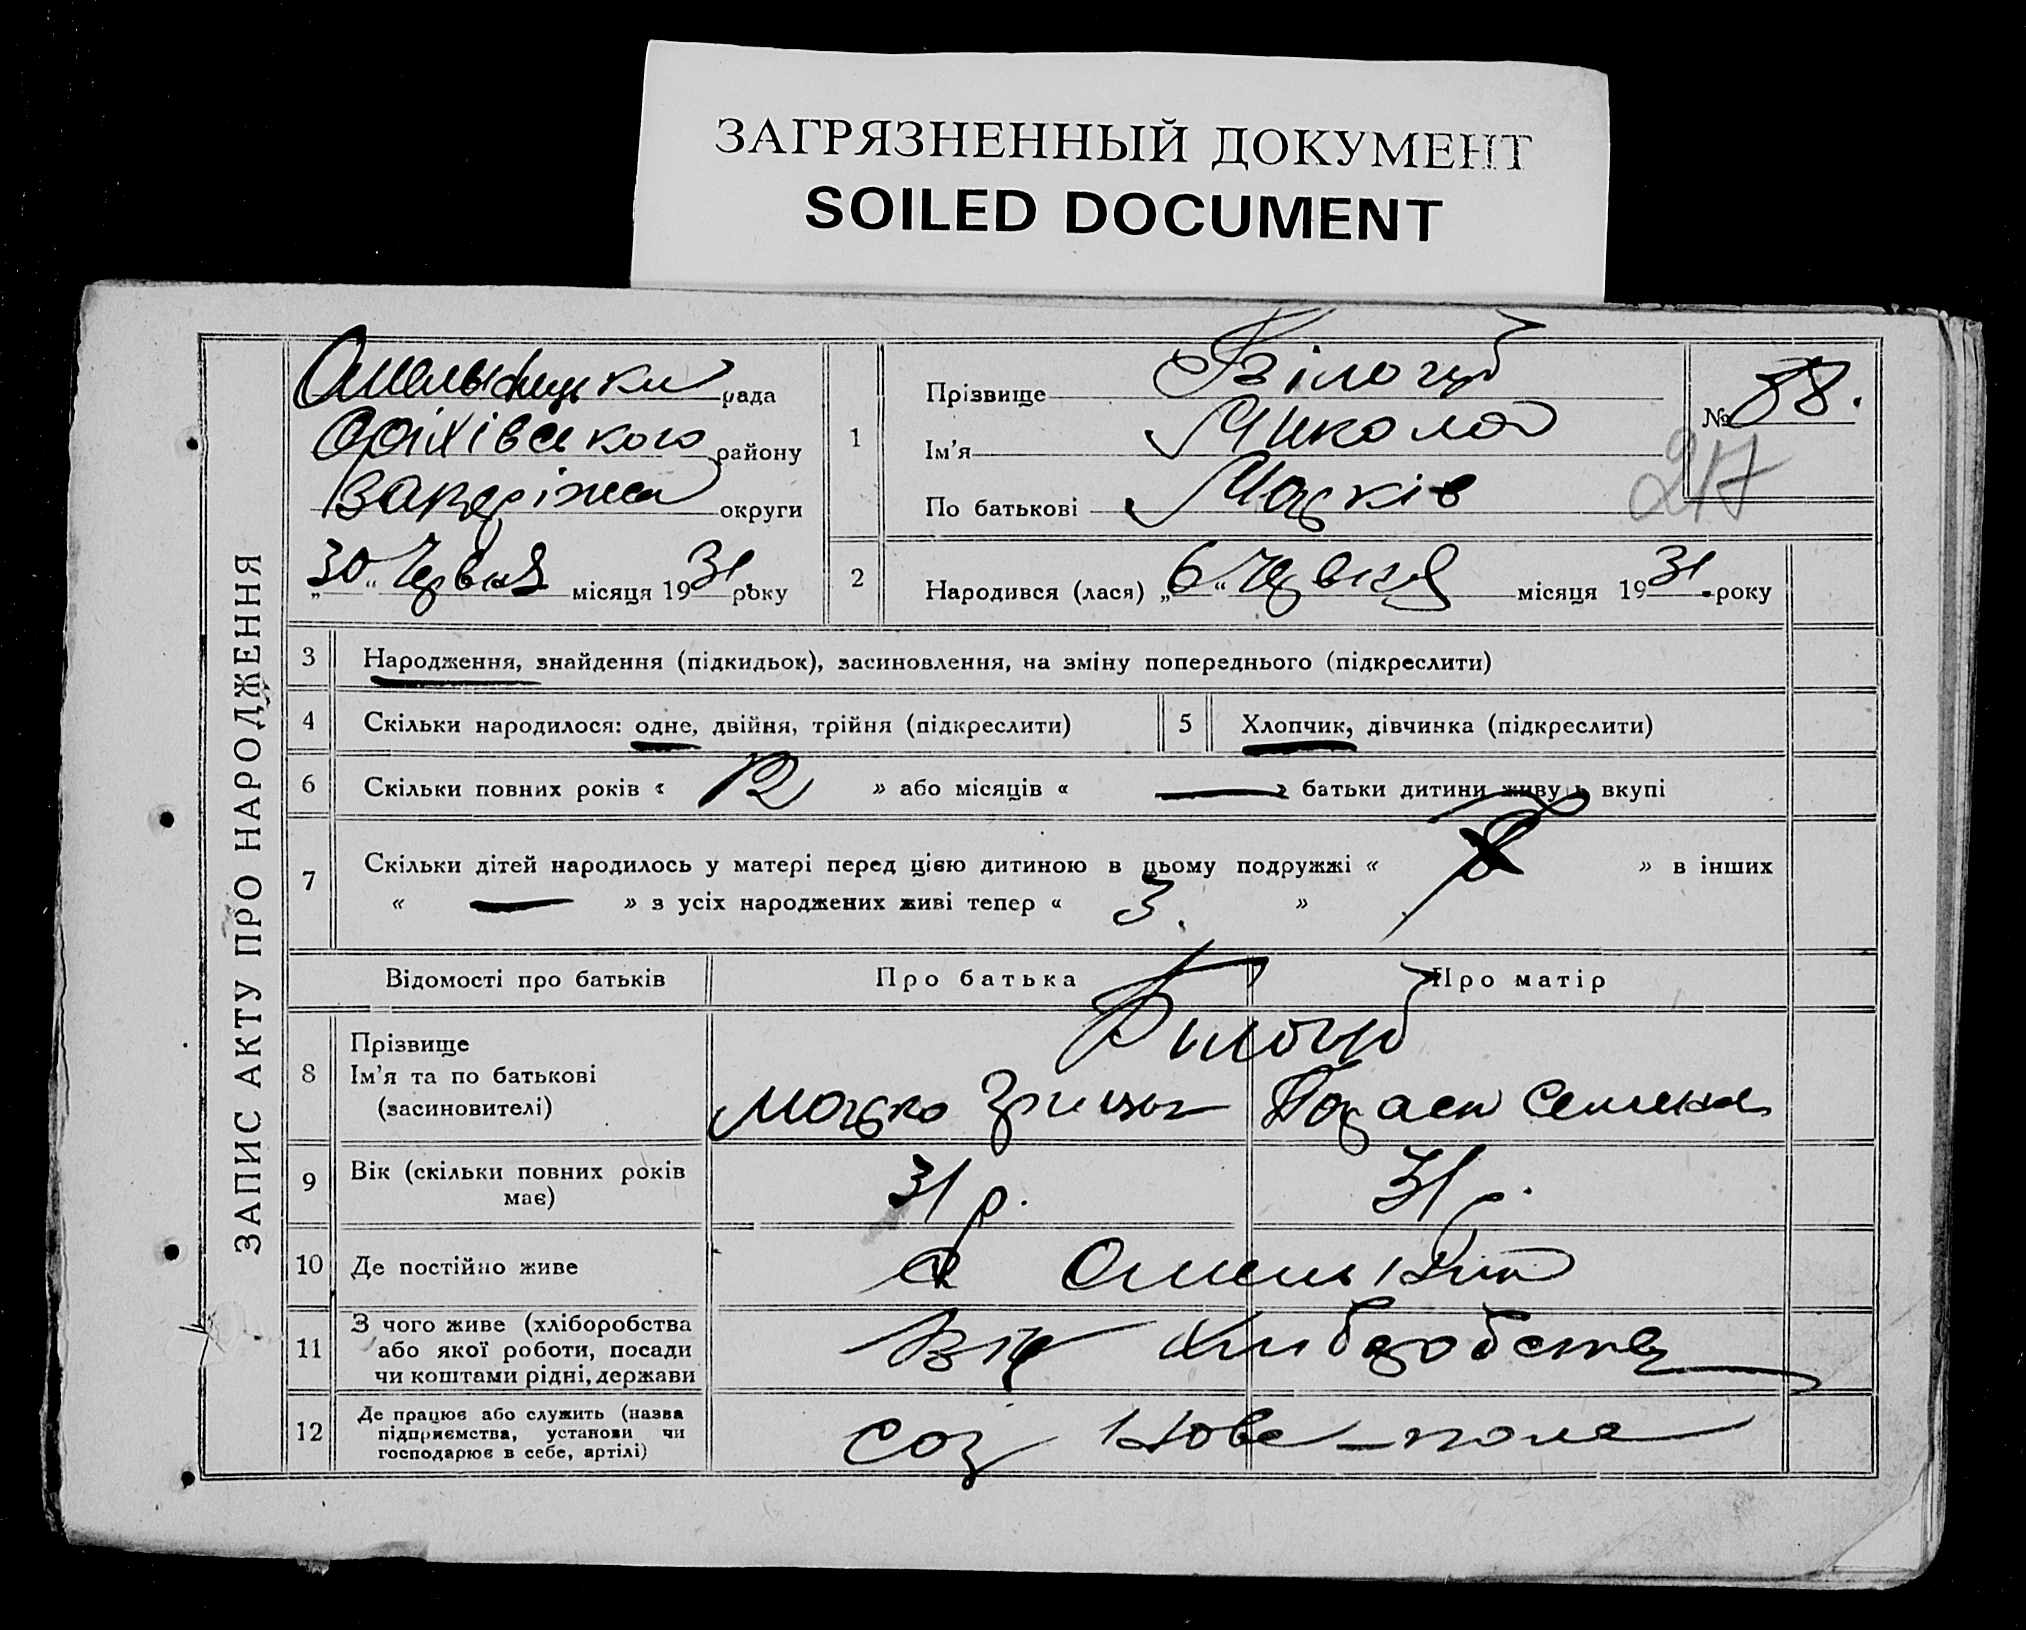 ЗАГРЯЗНЕННЫЙ ДОКУМЕНТ
SOILED DOCUMENT
ЗАПИС АКТУ ПРО НАРОДЖЕННЯ
рада
Оріхівського району
Запоріжжя округи
„30“ Червня місяця 1931 року
1
Прізвище Білоцуб
Ім'я Микола
По батькові Марків
№ 88.
217
2
Народився (лася) „6“ Червня місяця 1931 року
3 Народження, знайдення (підкидьок), засиновлення, на зміну попереднього (підкреслити)
4 Скільки народилося: одне, двійня, трійня (підкреслити)
5 Хлопчик, дівчинка (підкреслити)
6 Скільки повних років « 12 » або місяців « — » батьки дитини живуть вкупі
7 Скільки дітей народилось у матері перед цією дитиною в цьому подружжі « » в інших
« — » з усіх народжених живі тепер « 3. »
Відомості про батьків
Про батька
Про матір
8
Прізвище
Ім'я та по батькові
(засиновителі)
Білоцуб
Марко
9
Вік (скільки повних років
має)
31 р.
31 р.
10 Де постійно живе
с. Омельник
11
З чого живе (хліборобства
або якої роботи, посади
чи коштами рідні, держави
Від хліборобства
12
Де працює або служить (назва
підприємства, установи чи
господарює в себе, артілі)
Соз Нове-поле